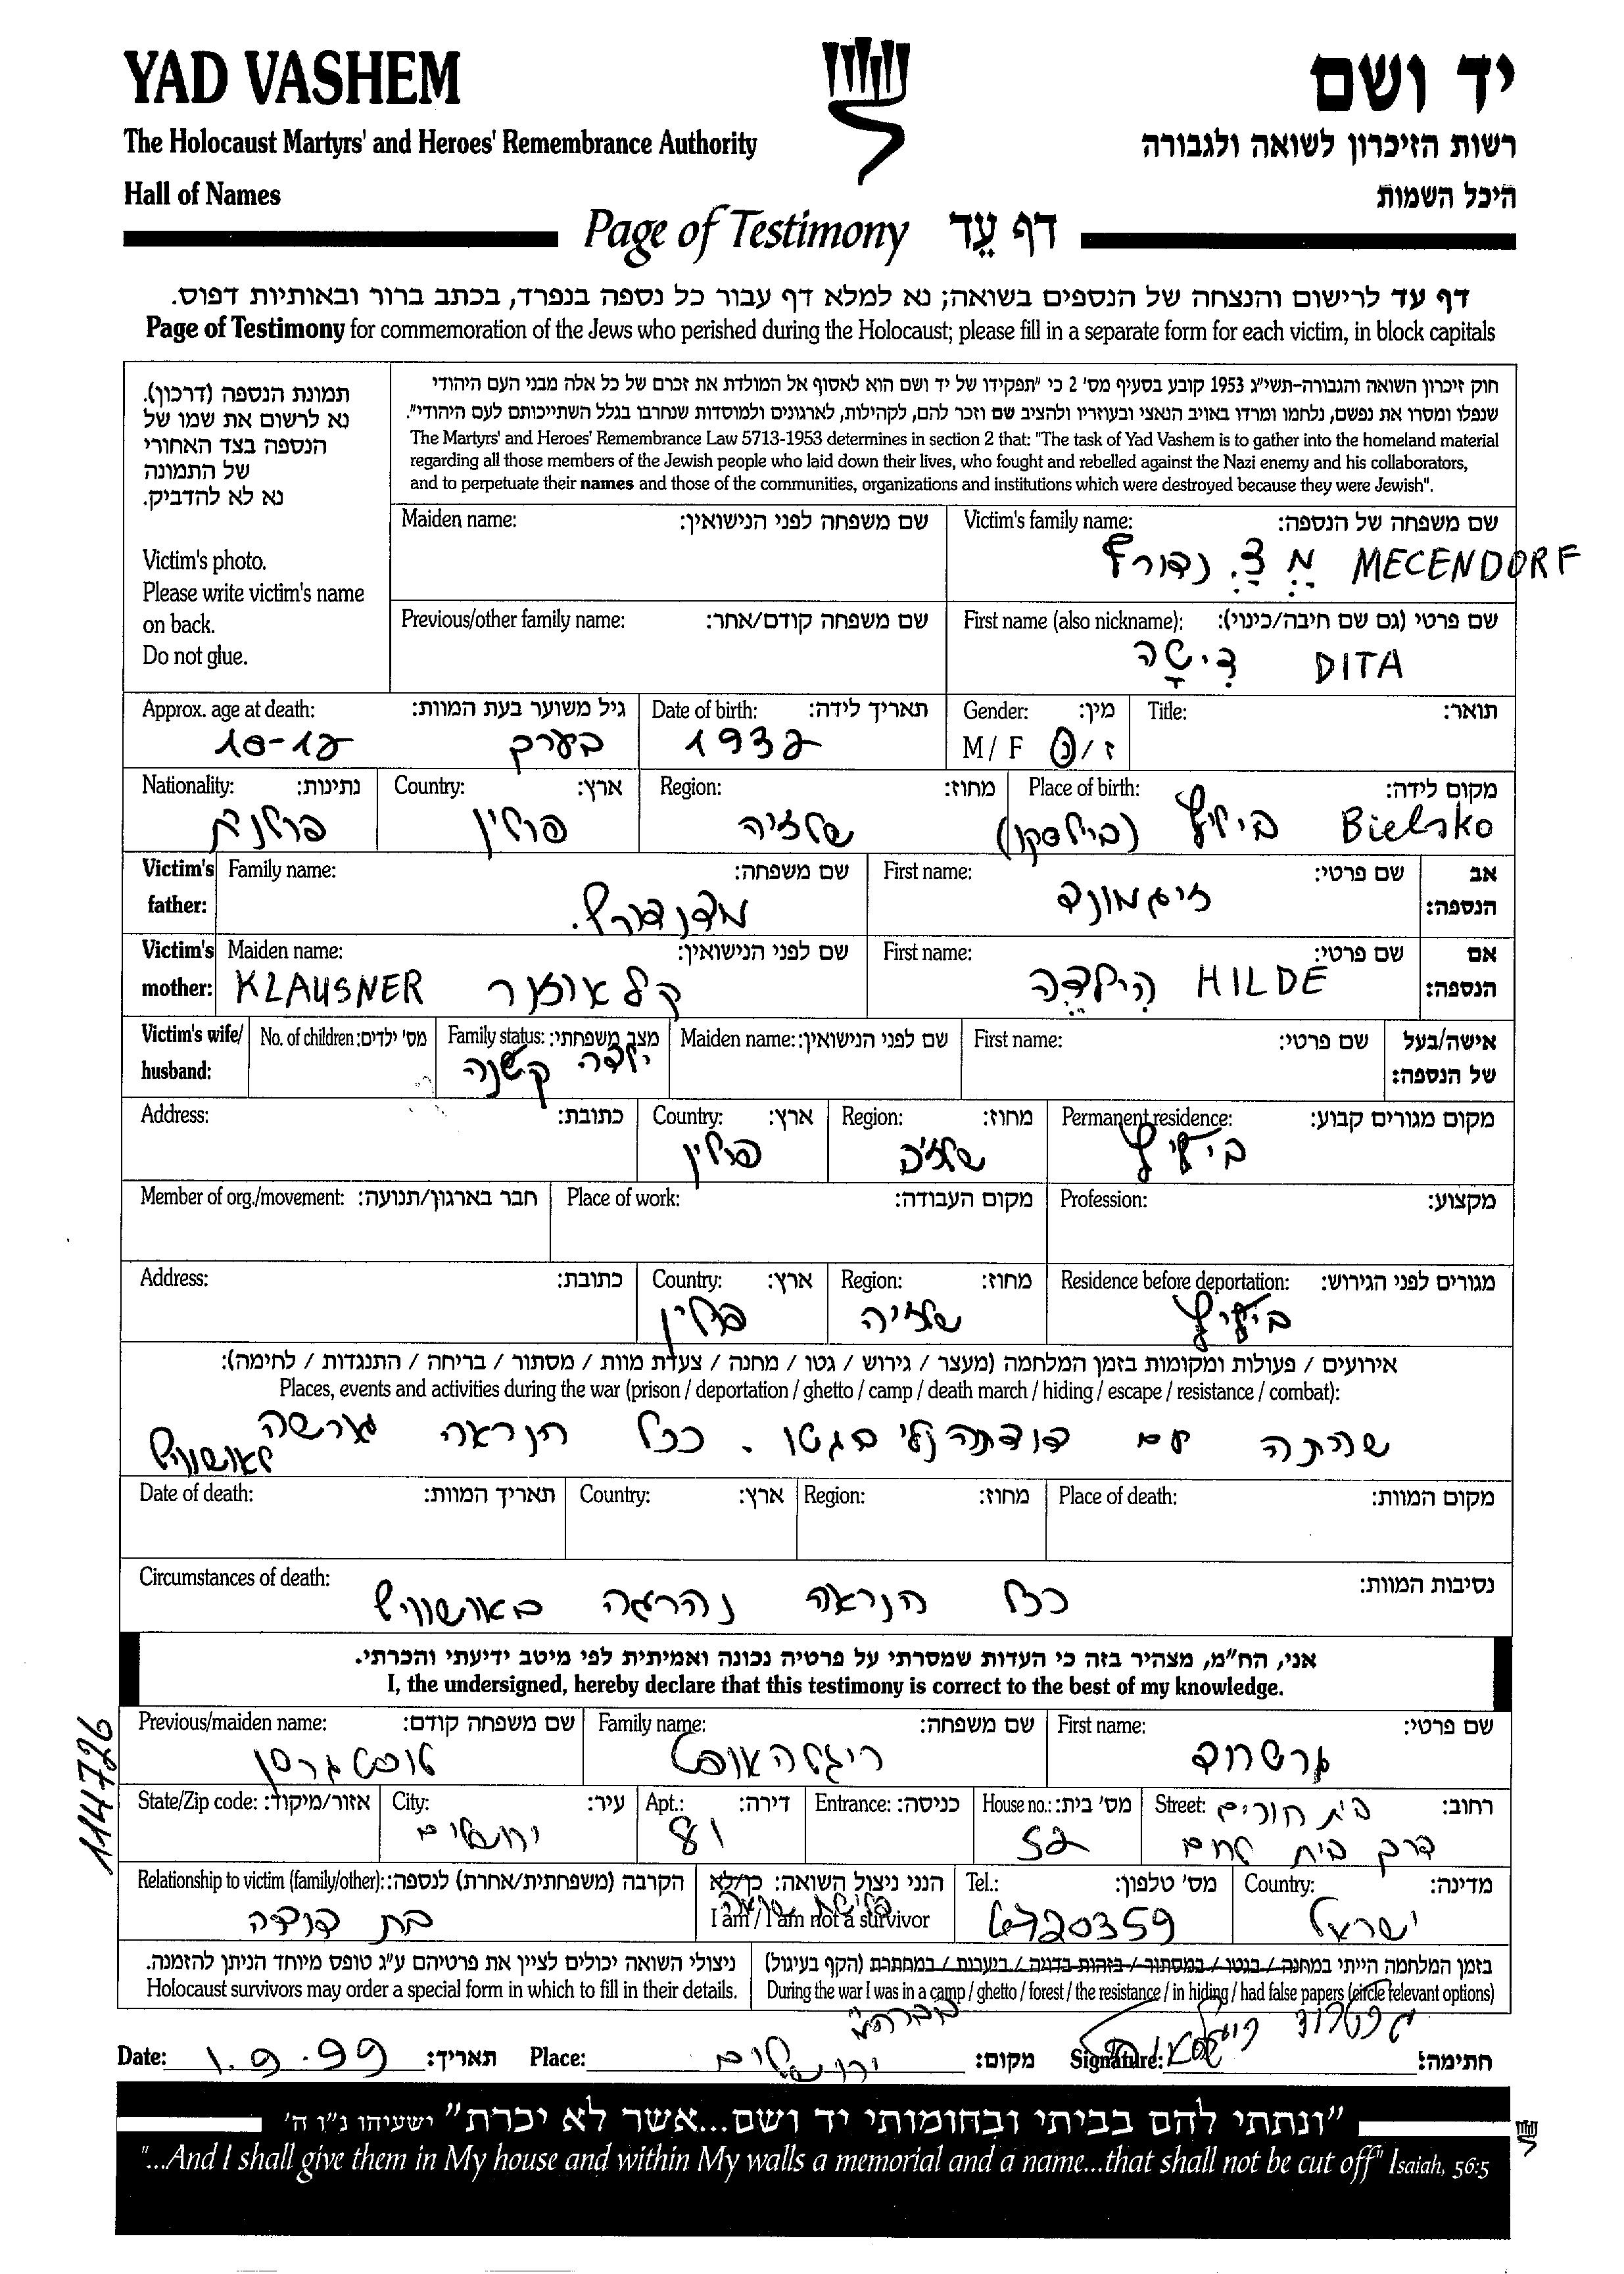 YAD VASHEM
יד ושם
The Holocaust Martyrs' and Heroes' Remembrance Authority
רשות הזיכרון לשואה ולגבורה
Hall of Names
היכל השמות
Page of Testimony דף עֵד
דף עד לרישום והנצחה של הנספים בשואה; נא למלא דף עבור כל נספה בנפרד, בכתב ברור ובאותיות דפוס.
Page of Testimony for commemoration of the Jews who perished during the Holocaust; please fill in a separate form for each victim, in block capitals
תמונת הנספה (דרכון).
נא לרשום את שמו של
הנספה בצד האחורי
של התמונה
נא לא להדביק.
Victim's photo.
Please write victim's name
on back.
Do not glue.
חוק זיכרון השואה והגבורה-תשי"ג 1953 קובע בסעיף מס' 2 כי "תפקידו של יד ושם הוא לאסוף אל המולדת את זכרם של כל אלה מבני העם היהודי
שנפלו ומסרו את נפשם, נלחמו ומרדו באויב הנאצי ובעוזריו ולהציב שם וזכר להם, לקהילות, לארגונים ולמוסדות שנחרבו בגלל השתייכותם לעם היהודי".
The Martyrs' and Heroes' Remembrance Law 5713-1953 determines in section 2 that: "The task of Yad Vashem is to gather into the homeland material
regarding all those members of the Jewish people who laid down their lives, who fought and rebelled against the Nazi enemy and his collaborators,
and to perpetuate their names and those of the communities, organizations and institutions which were destroyed because they were Jewish".
Victim's family name: שם משפחה של הנספה:
מֶצֶ.נדורף MECENDORF
Maiden name: שם משפחה לפני הנישואין:
First name (also nickname): שם פרטי (גם שם חיבה/כינוי):
דִיטָה DITA
Previous/other family name: שם משפחה קודם/אחר:
Title: תואר:
Gender: מין:
M / F ז / נ
Date of birth: תאריך לידה:
1932
Approx. age at death: גיל משוער בעת המוות:
10-12 בערך
Place of birth: מקום לידה:
Bielsko ביליץ (בילסקו)
Region: מחוז:
שלזיה
Country: ארץ:
פולין
Nationality: נתינות:
פולנית
Victim's father: אב הנספה:
First name: שם פרטי:
זיגמונד
Family name: שם משפחה:
מצנדורף.
Victim's mother: אם הנספה:
First name: שם פרטי:
הִילְדֶה HILDE
Maiden name: שם לפני הנישואין:
KLAUSNER קלאוזנר
Victim's wife/ husband: אישה/בעל של הנספה:
First name: שם פרטי:
Maiden name: שם לפני הנישואין:
Family status: מצב משפחתי:
ילדה קטנה
No. of children: מס' ילדים:
Permanent residence: מקום מגורים קבוע:
ביליץ
Region: מחוז:
שלזיה
Country: ארץ:
פולין
Address: כתובת:
Profession: מקצוע:
Place of work: מקום העבודה:
Member of org./movement: חבר בארגון/תנועה:
Residence before deportation: מגורים לפני הגירוש:
ביליץ
Region: מחוז:
שלזיה
Country: ארץ:
פולין
Address: כתובת:
אירועים / פעולות ומקומות בזמן המלחמה (מעצר / גירוש / גטו / מחנה / צעדת מוות / מסתור / בריחה / התנגדות / לחימה):
Places, events and activities during the war (prison / deportation / ghetto / camp / death march / hiding / escape / resistance / combat):
שהתה עם דודתה נלי בגטו. ככל הנראה גורשה
לאושוויץ
Place of death: מקום המוות:
Region: מחוז:
Country: ארץ:
Date of death: תאריך המוות:
Circumstances of death: נסיבות המוות:
ככל הנראה נהרגה באושוויץ
אני, הח"מ, מצהיר בזה כי העדות שמסרתי על פרטיה נכונה ואמיתית לפי מיטב ידיעתי והכרתי.
I, the undersigned, hereby declare that this testimony is correct to the best of my knowledge.
1114726
First name: שם פרטי:
גרטרוד
Family name: שם משפחה:
ריגלהאופט
Previous/maiden name: שם משפחה קודם:
Street: רחוב:
בית הורים
דרך בית לחם
House no.: מס' בית:
52
Entrance: כניסה:
Apt.: דירה:
81
City: עיר:
ירושלים
State/Zip code: אזור/מיקוד:
Country: מדינה:
ישראל
Tel.: מס' טלפון:
6720359
הנני ניצול השואה: כן/לא
I am / I am not a survivor
פליטת שואה
Relationship to victim (family/other): הקרבה (משפחתית/אחרת) לנספה:
בת דודה
בזמן המלחמה הייתי במחנה / בגטו / במסתור / בזהות בדויה / ביערות / במחתרת (הקף בעיגול)
During the war I was in a camp / ghetto / forest / the resistance / in hiding / had false papers (circle relevant options)
ניצולי השואה יכולים לציין את פרטיהם ע"ג טופס מיוחד הניתן להזמנה.
Holocaust survivors may order a special form in which to fill in their details.
Date: 1.9.99 תאריך: Place: ירושלים מקום: Signature: חתימה:
"ונתתי להם בביתי ובחומותי יד ושם...אשר לא יכרת" ישעיהו נ"ו ה'
"...And I shall give them in My house and within My walls a memorial and a name...that shall not be cut off" Isaiah, 56:5